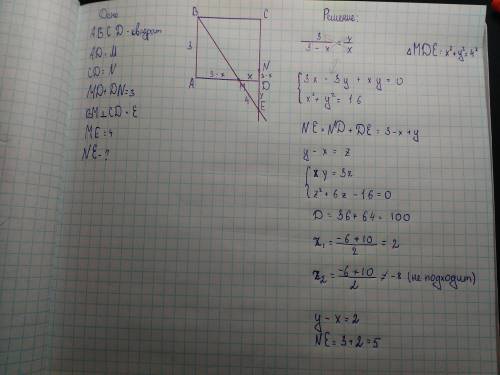 Дано
ABCD - квадрат
AD = M
CD = N
MD + DN = 3
BM ⊥ CD = E
ME = 4
NE - ?
B
C
3
N
3-x
x
3-x
A
M
D
4
y
E
Решение:
3/(3-x) = y/x
△MDE: x²+y²=4²
{3x - 3y + xy = 0
x² + y² = 16
NE = ND + DE = 3-x+y
y - x = z
{xy = 3z
z² + 6z - 16 = 0
D = 36 + 64 = 100
z₁ = (-6+10)/2 = 2
z₂ = (-6+10)/2 ≠ -8 (не подходит)
y - x = 2
NE = 3 + 2 = 5